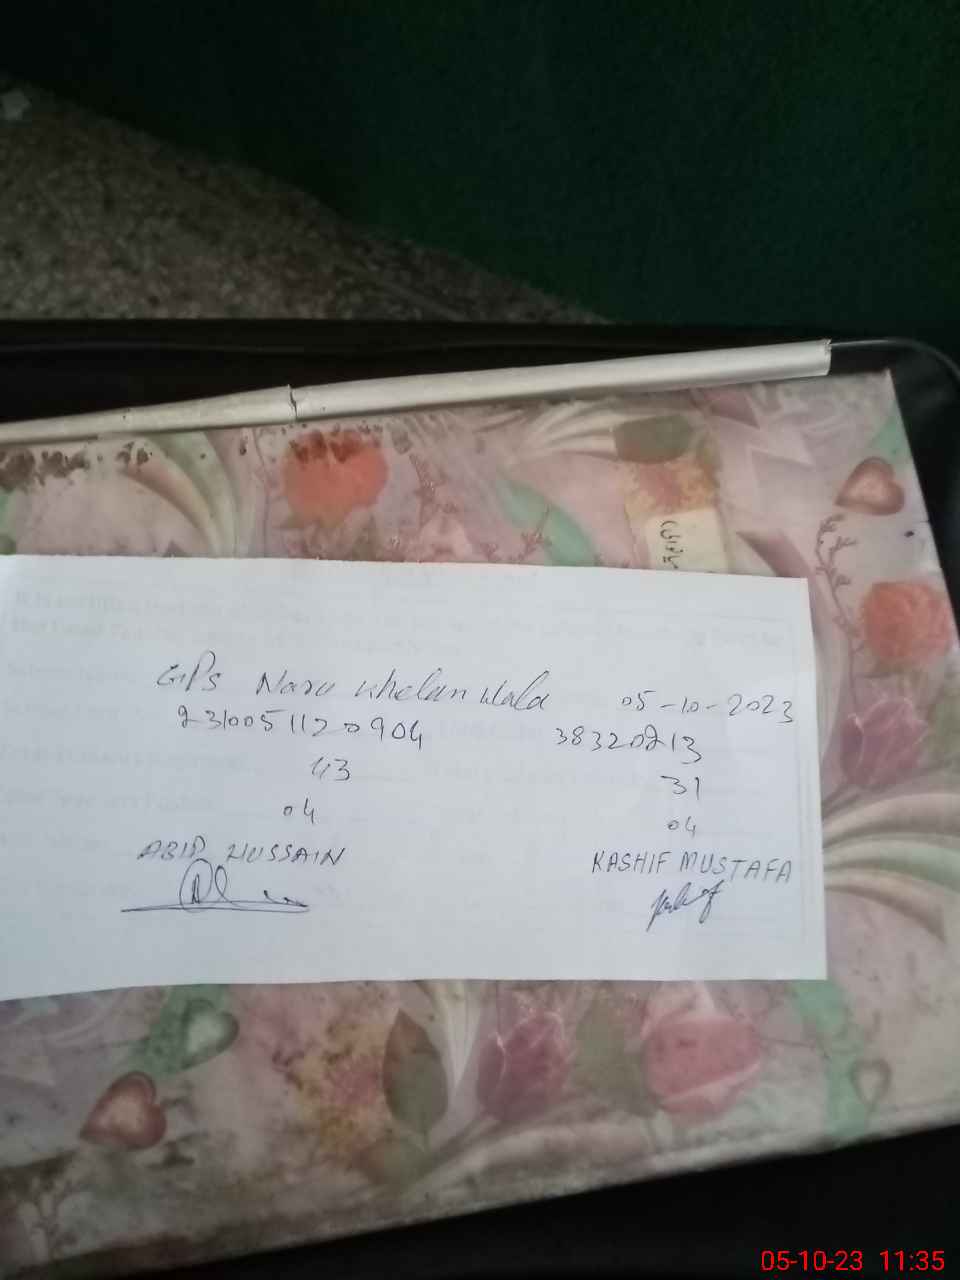 GPS Nara Khelan Wala 05-10-2023
2310051120904 38320213
43 31
04 04
ABID HUSSAIN KASHIF MUSTAFA
05-10-23 11:35